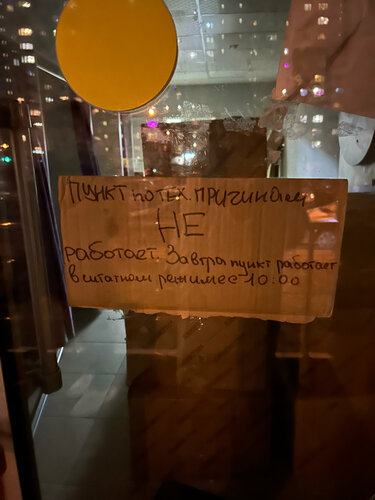 ПУНКТ по ТЕХ. ПРИЧИНам
НЕ
работает. Завтра пункт работает
в штатном режиме с 10:00